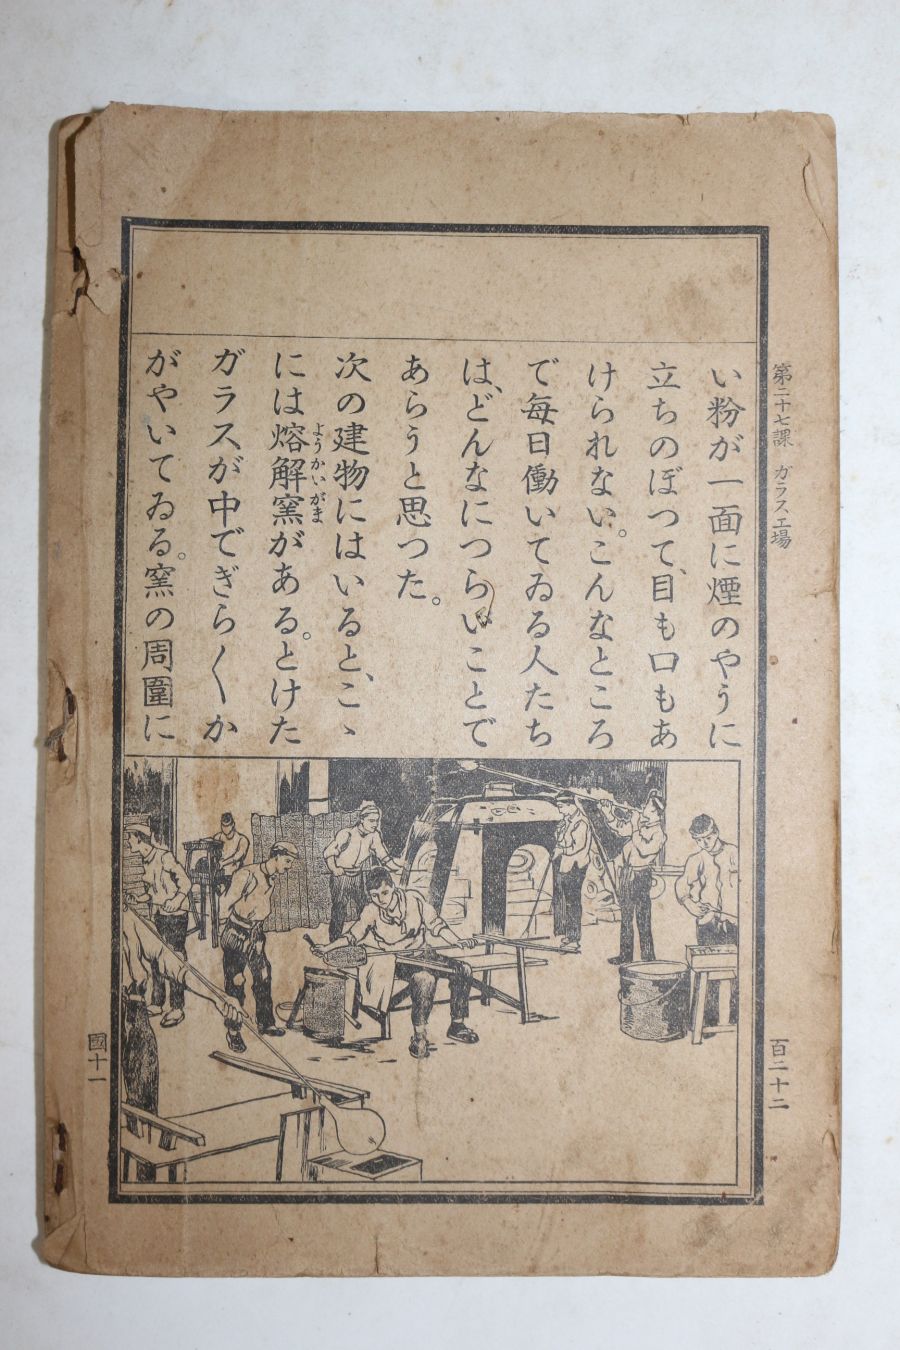 第二十七課 ガラス工場
百二十二
い粉が一面に煙のやうに
立ちのぼつて、目も口もあ
けられない。こんなところ
で毎日働いてゐる人たち
は、どんなにつらいことで
あらうと思つた。
次の建物にはいると、こゝ
には熔解窯がある. とけた
ようかいがま
ガラスが中でぎら〱か
がやいてゐる。窯の周圍に
國十一